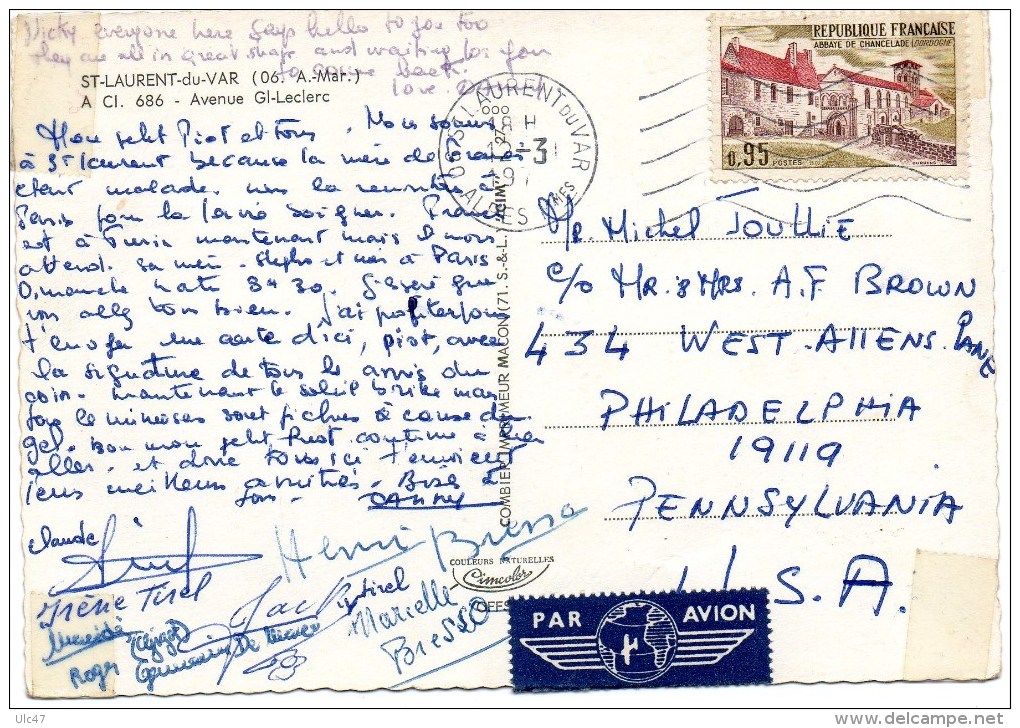 Nicky everyone here says hello to you too
they are all in great shape and waiting for you
to come back.
love.
ST-LAURENT-du-VAR (06. A.-Mar.)
A CI. 686 - Avenue Gl-Leclerc
Mon petit Piot et tous. Nous sommes
à St Laurent because la mère de
étant malade. nous la
Paris pour la faire soigner. Franck
est à Turin maintenant mais il nous
attend. sa mère. et moi à Paris
Dimanche matin 8h 30. J'espère que
vous allez tous bien. J'ai profiter pour
t'envoyer une carte d'ici, piot, avec
la signature de tous les amis du
coin. maintenant le soleil brille mais
les mimosas sont fichus à cause du
gel. Bon mon petit Piot continue à bien
aller. et donc tous ici t'envoient
leurs meilleurs amitiés. Bises à
tous. DANNY
Claude
Henri Bresso
Irène Tirel
Jack Tirel
Marielle
Bresso
Roger
Germaine
COMBIER IMPRIMEUR MACON (71. S.-&-L.) "CIM"
COULEURS NATURELLES
Cimcolor
ST LAURENT DU VAR
18 H
-3
ALPES MMES
REPUBLIQUE FRANÇAISE
ABBAYE DE CHANCELADE (DORDOGNE)
0,95
POSTES
Mr. Michel JOULLIE
c/o MR. & MRS. A.F BROWN
434 WEST-ALLENS. LANE
PHILADELPHIA
19119
PENNSYLVANIA
U.S.A.
PAR AVION
Ulc47
delcampe.net